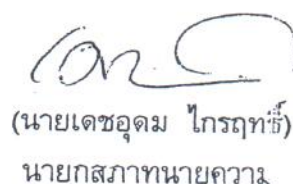 (นายเดชอุดม ไกรฤทธิ์)
นายกสภาทนายความ